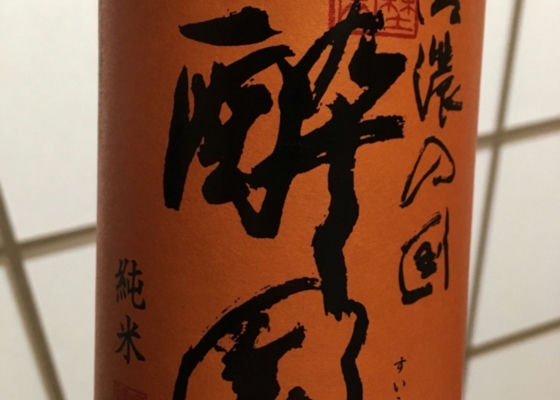 信濃の国
酔園
すい
純米